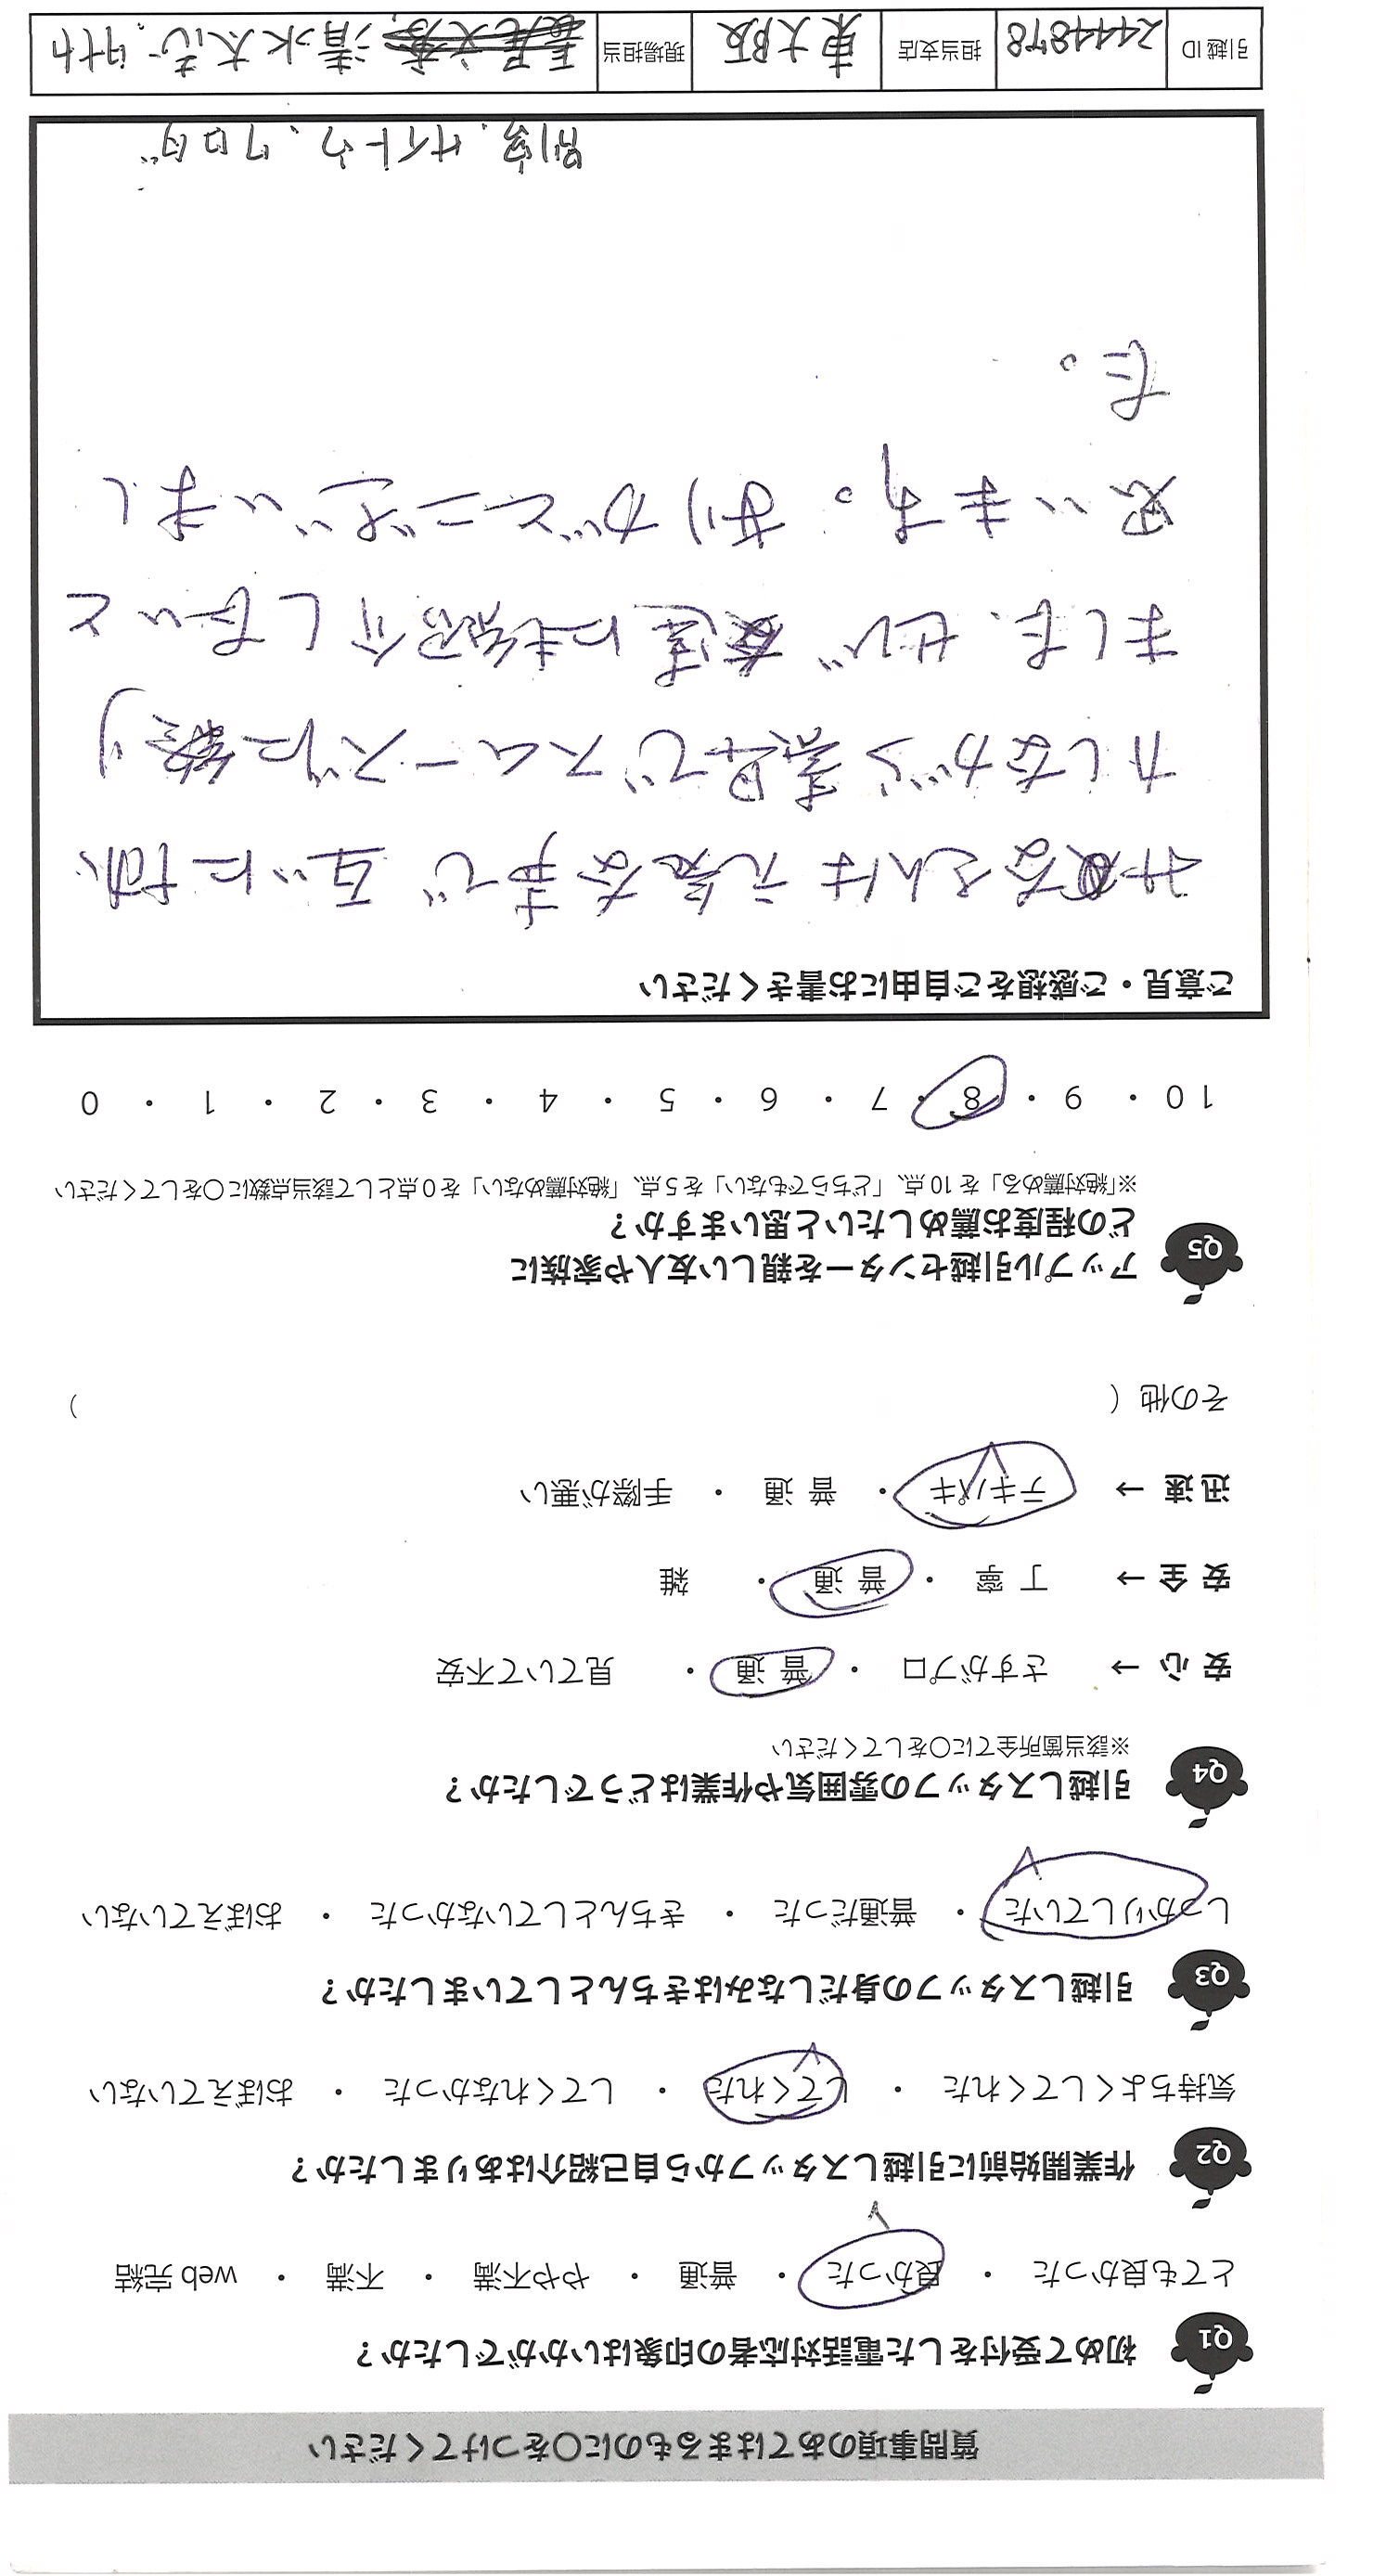 質問事項のあてはまるものに○をつけてください
Q1 初めて受付をした電話対応者の印象はいかがでしたか？
とても良かった ・ 良かった ・ 普通 ・ やや不満 ・ 不満 ・ web 完結
Q2 作業開始前に引越しスタッフから自己紹介はありましたか？
気持ちよくしてくれた ・ してくれた ・ してくれなかった ・ おぼえていない
Q3 引越しスタッフの身だしなみはきちんとしていましたか？
しっかりしていた ・ 普通だった ・ きちんとしていなかった ・ おぼえていない
Q4 引越しスタッフの雰囲気や作業はどうでしたか？
※該当箇所全てに○をしてください
安心 → さすがプロ ・ 普通 ・ 見ていて不安
安全 → 丁寧 ・ 普通 ・ 雑
迅速 → テキパキ ・ 普通 ・ 手際が悪い
その他（ ）
Q5 アップル引越センターを親しい友人や家族に
どの程度お薦めしたいと思いますか？
※「絶対薦める」を 10 点、「どちらでもない」を 5 点、「絶対薦めない」を 0 点として該当点数に○をしてください
10 ・ 9 ・ 8 ・ 7 ・ 6 ・ 5 ・ 4 ・ 3 ・ 2 ・ 1 ・ 0
ご意見・ご感想をご自由にお書きください
なさんは元気な声で 互いに
かしながら 素早でスムーズに終り
ました、ぜひ 友達にも紹介したいと
思います。ありがとございまし
た。
別家、サイトウ、クロダ
引越 ID 2444878 担当支店 東大阪 現場担当 清水大志、